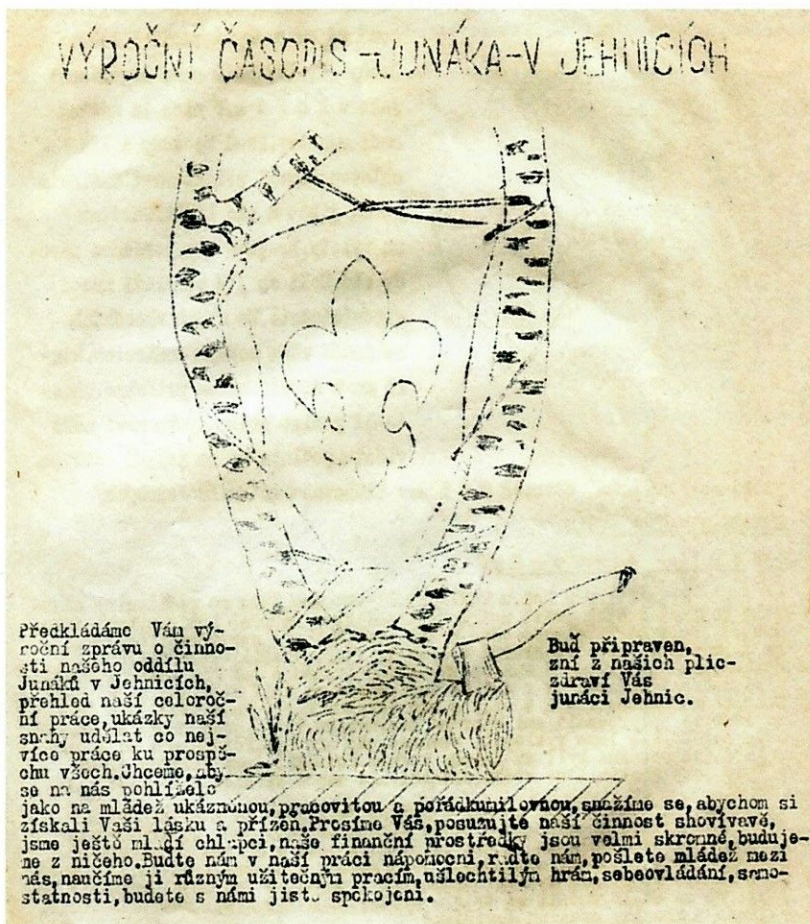 VÝROČNÍ ČASOPIS-JUNÁKA-V JEHNICÍCH
Předkládáme Vám vý-
roční zprávu o činno-
sti našeho oddílu
Junáků v Jehnicích,
přehled naší celoroč-
ní práce,ukázky naší
snahy udělat co nej-
více práce ku prospě-
chu všech.Chceme,aby
se na nás pohlíželo
jako na mládež ukázněnou,pracovitou a pořádkumilovnou,snažíme se,abychom si
získali Vaši lásku a přízeň.Prosíme Vás,posuzujte naší činnost shovívavě,
jsme ještě mladí chlapci,naše finanční prostředky jsou velmi skromné,buduje-
me z ničeho.Buďte nám v naší práci nápomocni,raďte nám,pošlete mládež mezi
nás,naučíme ji různým užitečným pracím,ušlechtilým hrám,sebeovládání,samo-
statnosti,budete s námi jistě spokojeni.
Buď připraven,
zní z našich plic-
zdraví Vás
junáci Jehnic.